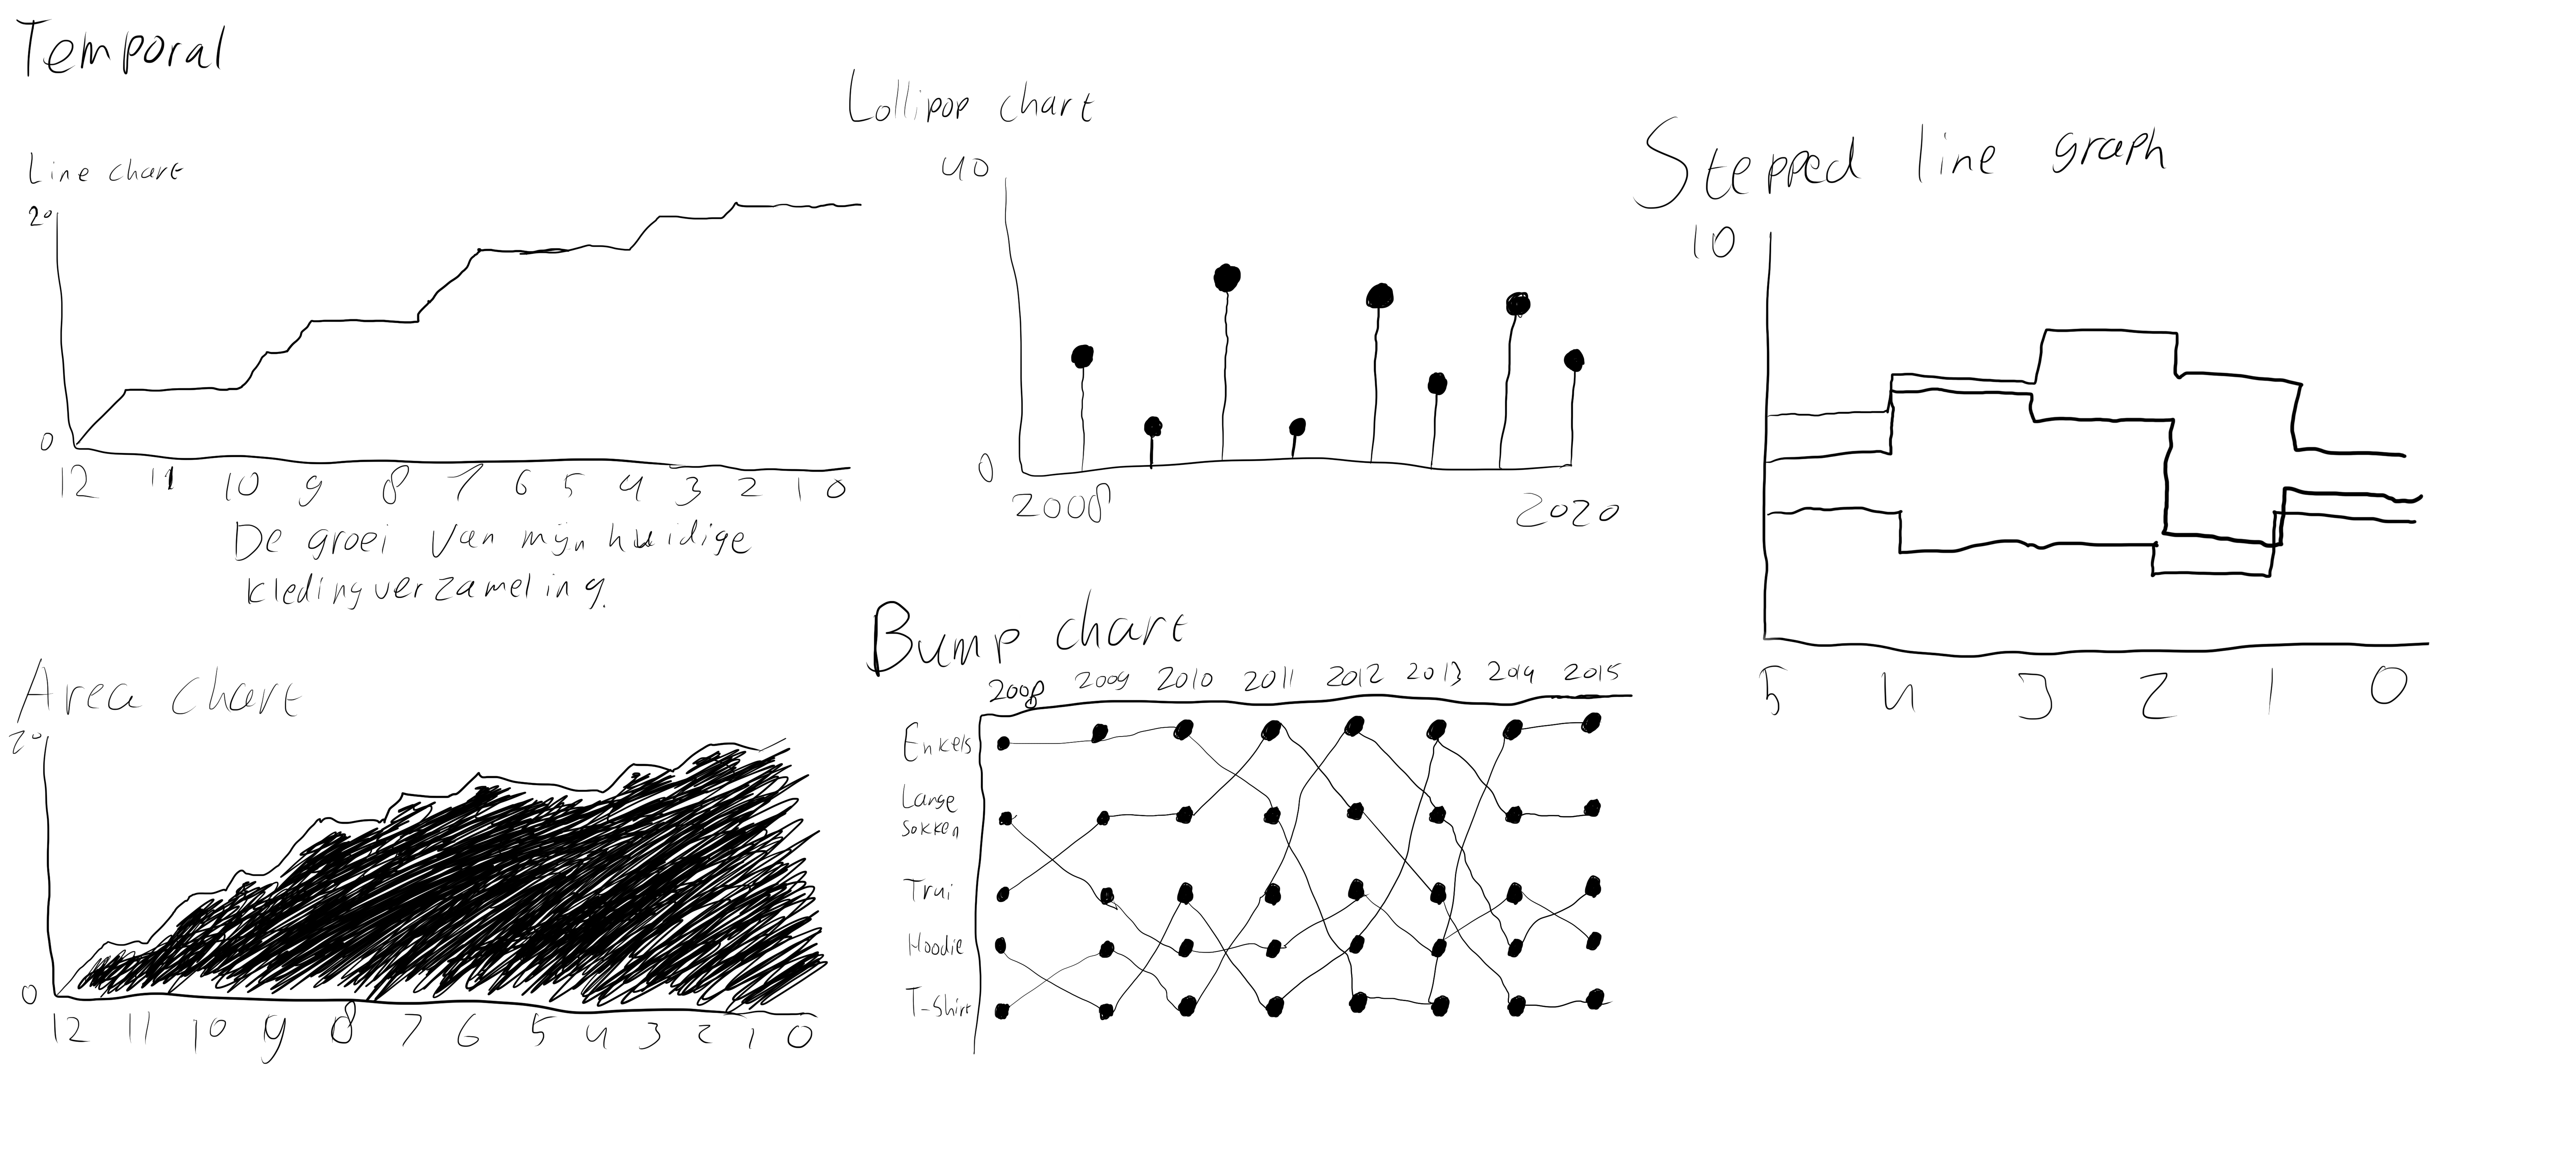 Temporal
Line chart
20
0
12 11 10 9 8 7 6 5 4 3 2 1 0
De groei van mijn huidige
kledingverzameling.
Area chart
20
0
12 11 10 9 8 7 6 5 4 3 2 1 0
Lollipop chart
40
0
2008 2020
Bump chart
2008 2009 2010 2011 2012 2013 2014 2015
Enkels
Lange
sokken
Trui
Hoodie
T-Shirt
Stepped line graph
10
5 4 3 2 1 0